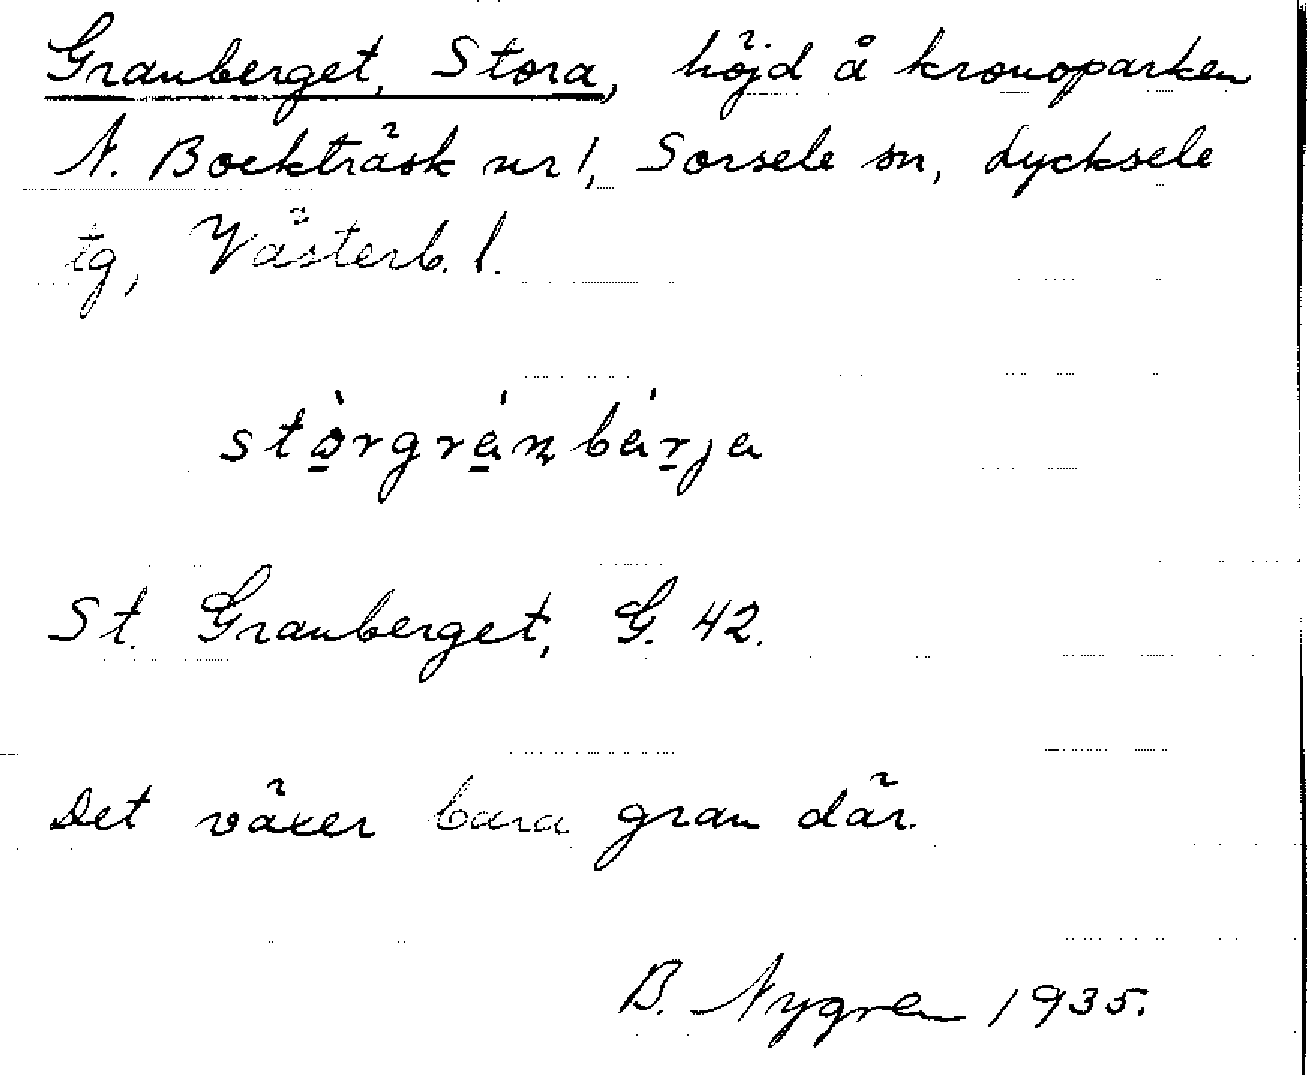 Granberget, Stora, höjd å kronoparken
N. Boekträsk nr 1, Sorsele sn, Lycksele
tg, Västerb. l.
stòrgránbárja
St. Granberget, G. 42.
Det växer bara gran där.
B. Nygren 1935.